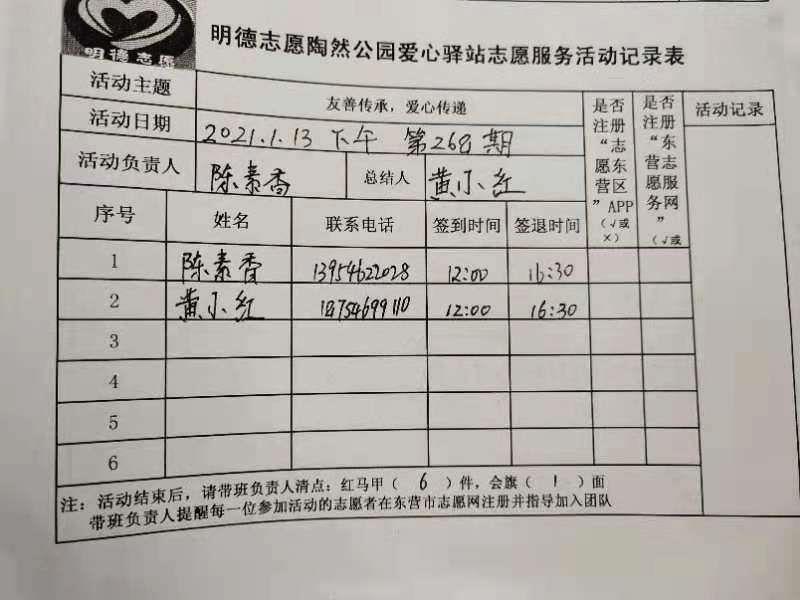 明德志愿
明德志愿陶然公园爱心驿站志愿服务活动记录表
活动主题 友善传承，爱心传递 是否注册“志愿东营区”APP（√或×） 是否注册“东营志愿服务网”（√或 活动记录
活动日期 2021.1.13 下午 第268期
活动负责人 陈素香 总结人 黄小红
序号 姓名 联系电话 签到时间 签退时间
1 陈素香 13954622028 12:00 16:30
2 黄小红 12:00 16:30
3
4
5
6
注：活动结束后，请带班负责人清点：红马甲（ 6 ）件，会旗（ 1 ）面
带班负责人提醒每一位参加活动的志愿者在东营市志愿网注册并指导加入团队